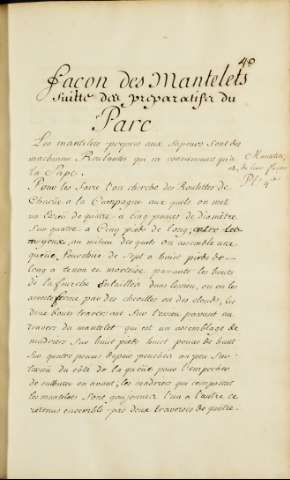 40
Façon des Mantelets
Suitte des preparatifs du
Parc
Les mantelets propres aux Sapeurs sont des
machines Roulantes qui ne conviennent qu'à
la Sape.
Mantelets,
et de leur façon
Pl.
Pour les faire l'on cherche des Roulettes de
Charüe a la Campagne aux quels on met
un Essieu de quatre a cinq pouces de diamètre
Sur quatre a Cinq pieds de long, entre les
moyeux, au milieu des quels on assemble une
queüe, fourchue de Sept a huit pieds de
long a tenon et mortoise passants les bouts
de la fourche Entaillez dans l'essieu, ou on les
arreste ferme par des chevilles ou des clouds, les
deux bouts traversent Sur l'essieu passent au
travers du mantelet qui est un assemblage de
madriers Sur huit pieds huit pouces de haut
Sur quatre pouces depuis penchez un peu Sur
l'essieu du côté de la queüe pour l'empecher
de culbuter en avant, les madriers qui composent
les mantelets Sont goujonnez l'un a l'autre et
retenus ensemble par deux traverses de quatre